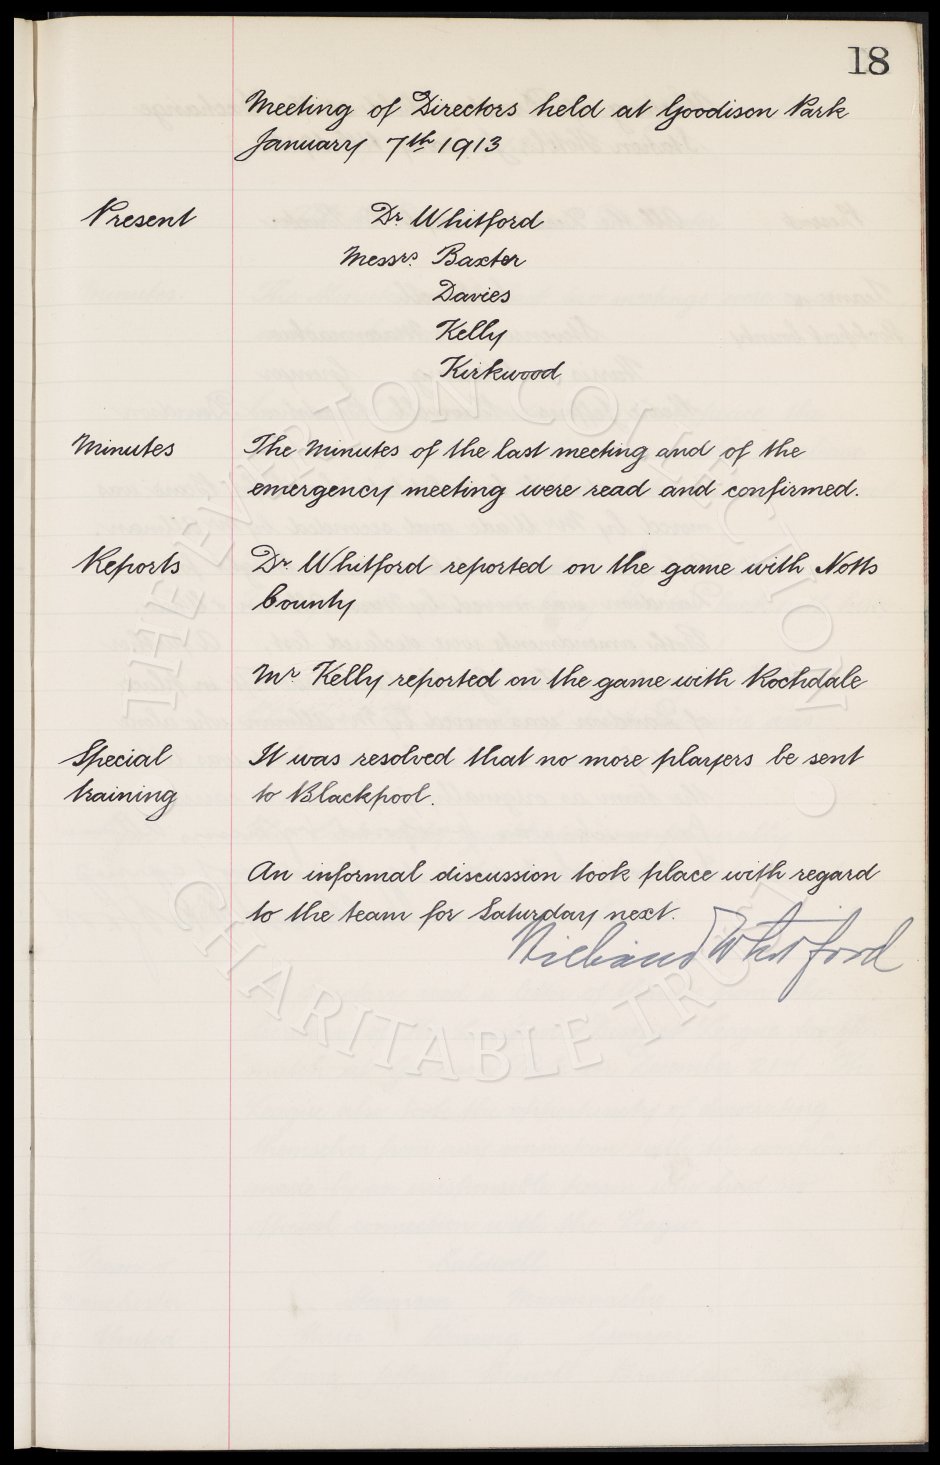 18
Meeting of Directors held at Goodison Park
January 7th 1913
Present
Dr. Whitford
Messrs. Baxter
Davies
Kelly
Kirkwood
Minutes
The Minutes of the last meeting and of the
emergency meeting were read and confirmed.
Reports
Dr. Whitford reported on the game with Notts
County
Mr. Kelly reported on the game with Rochdale
Special
It was resolved that no more players be sent
training
to Blackpool.
An informal discussion took place with regard
to the team for Saturday next.
Whitford
THE EVERTON COLLECTION
CHARITABLE TRUST